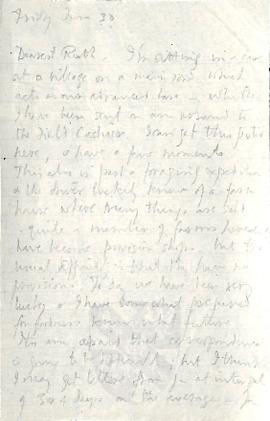 Friday June 30
Dearest Ruth. I'm sitting in a car
at a village on a main road which
acts as our advanced base -
I have been sent on an errand to
the Field Cashier. I can get this posted
here, & have a few moments.
This also is just a foraging expedition
& the driver luckily knew of a farm
house where many things are sold
- quite a number of farms round
have become provision shops. but the
usual difficulty is that they have no
provisions. To day we have been very
lucky & I have somewhat prepared
for
I'm afraid that correspondence
is going to be difficult, but I think
I may get letters from you at intervals
of 3 or 4 days on the average